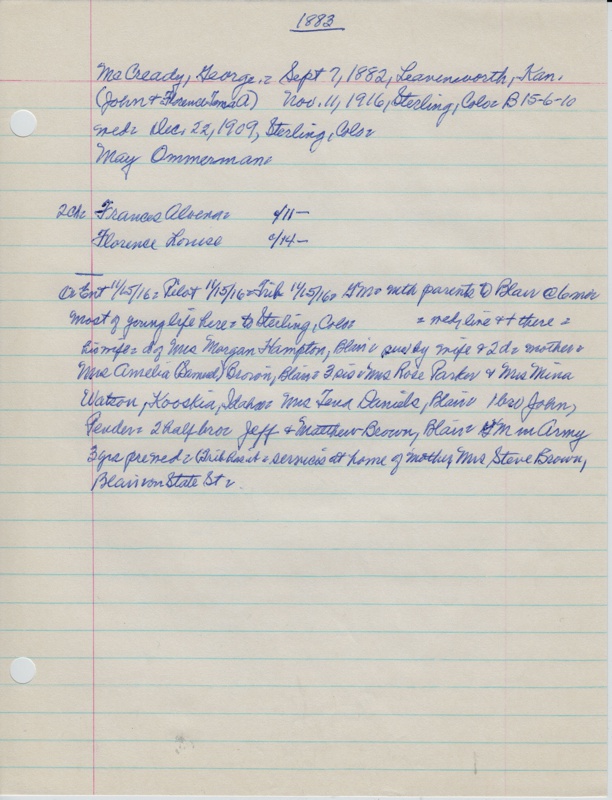 1883
McCready, George = Sept 7, 1882, Leavenworth, Kan.
(John & Florence) Nov. 11, 1916, Sterling, Colo = B 15-6-10
med = Dec. 22, 1909, Sterling, Colo =
May Ommerman =
2ch = Frances = c/11 —
Florence Louise c/14 —
Ent 11/15/16 = Pilot 11/15/16 = Trib 11/15/16 = GM = with parents to Blair @
most of young life here = to Sterling, Colo = = med, live there =
his wife = d of Mrs Morgan Hampton, Blair = sur by wife & 2 d = mother =
Mrs Amelia Brown, Blair = 3 sis = Mrs Rose Parker & Mrs Mina
Watson, Kooskia, Idaho = Mrs Daniels, Blair = 1 bro John,
Pender = 2 half bro = Jeff & Matthew Brown, Blair = GM in Army
3 yrs = services at home of mother, Mrs Steve Brown,
Blair on State St =